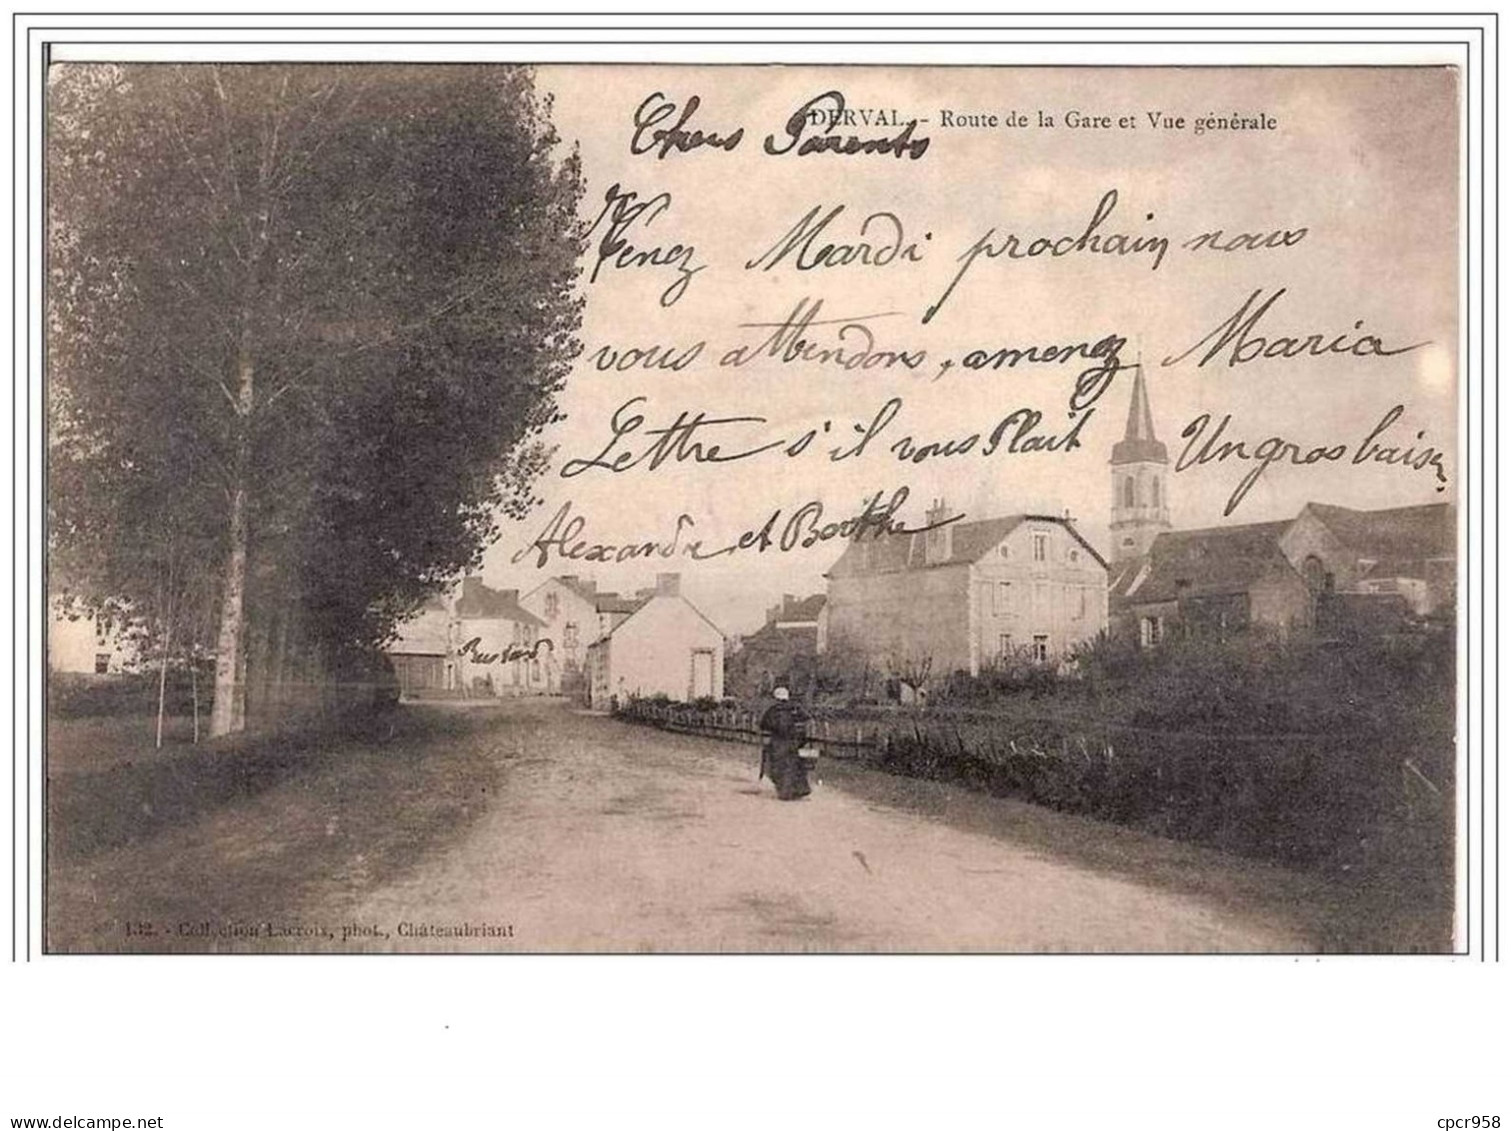 DERVAL. - Route de la Gare et Vue générale
Chers Parents
Venez Mardi prochain nous
vous attendons, amenez Maria
Lettre s'il vous Plait Un gros baiser
Alexandre et Berthe
132. - Collection Lacroix, phot., Châteaubriant
www.delcampe.net
cpcr958